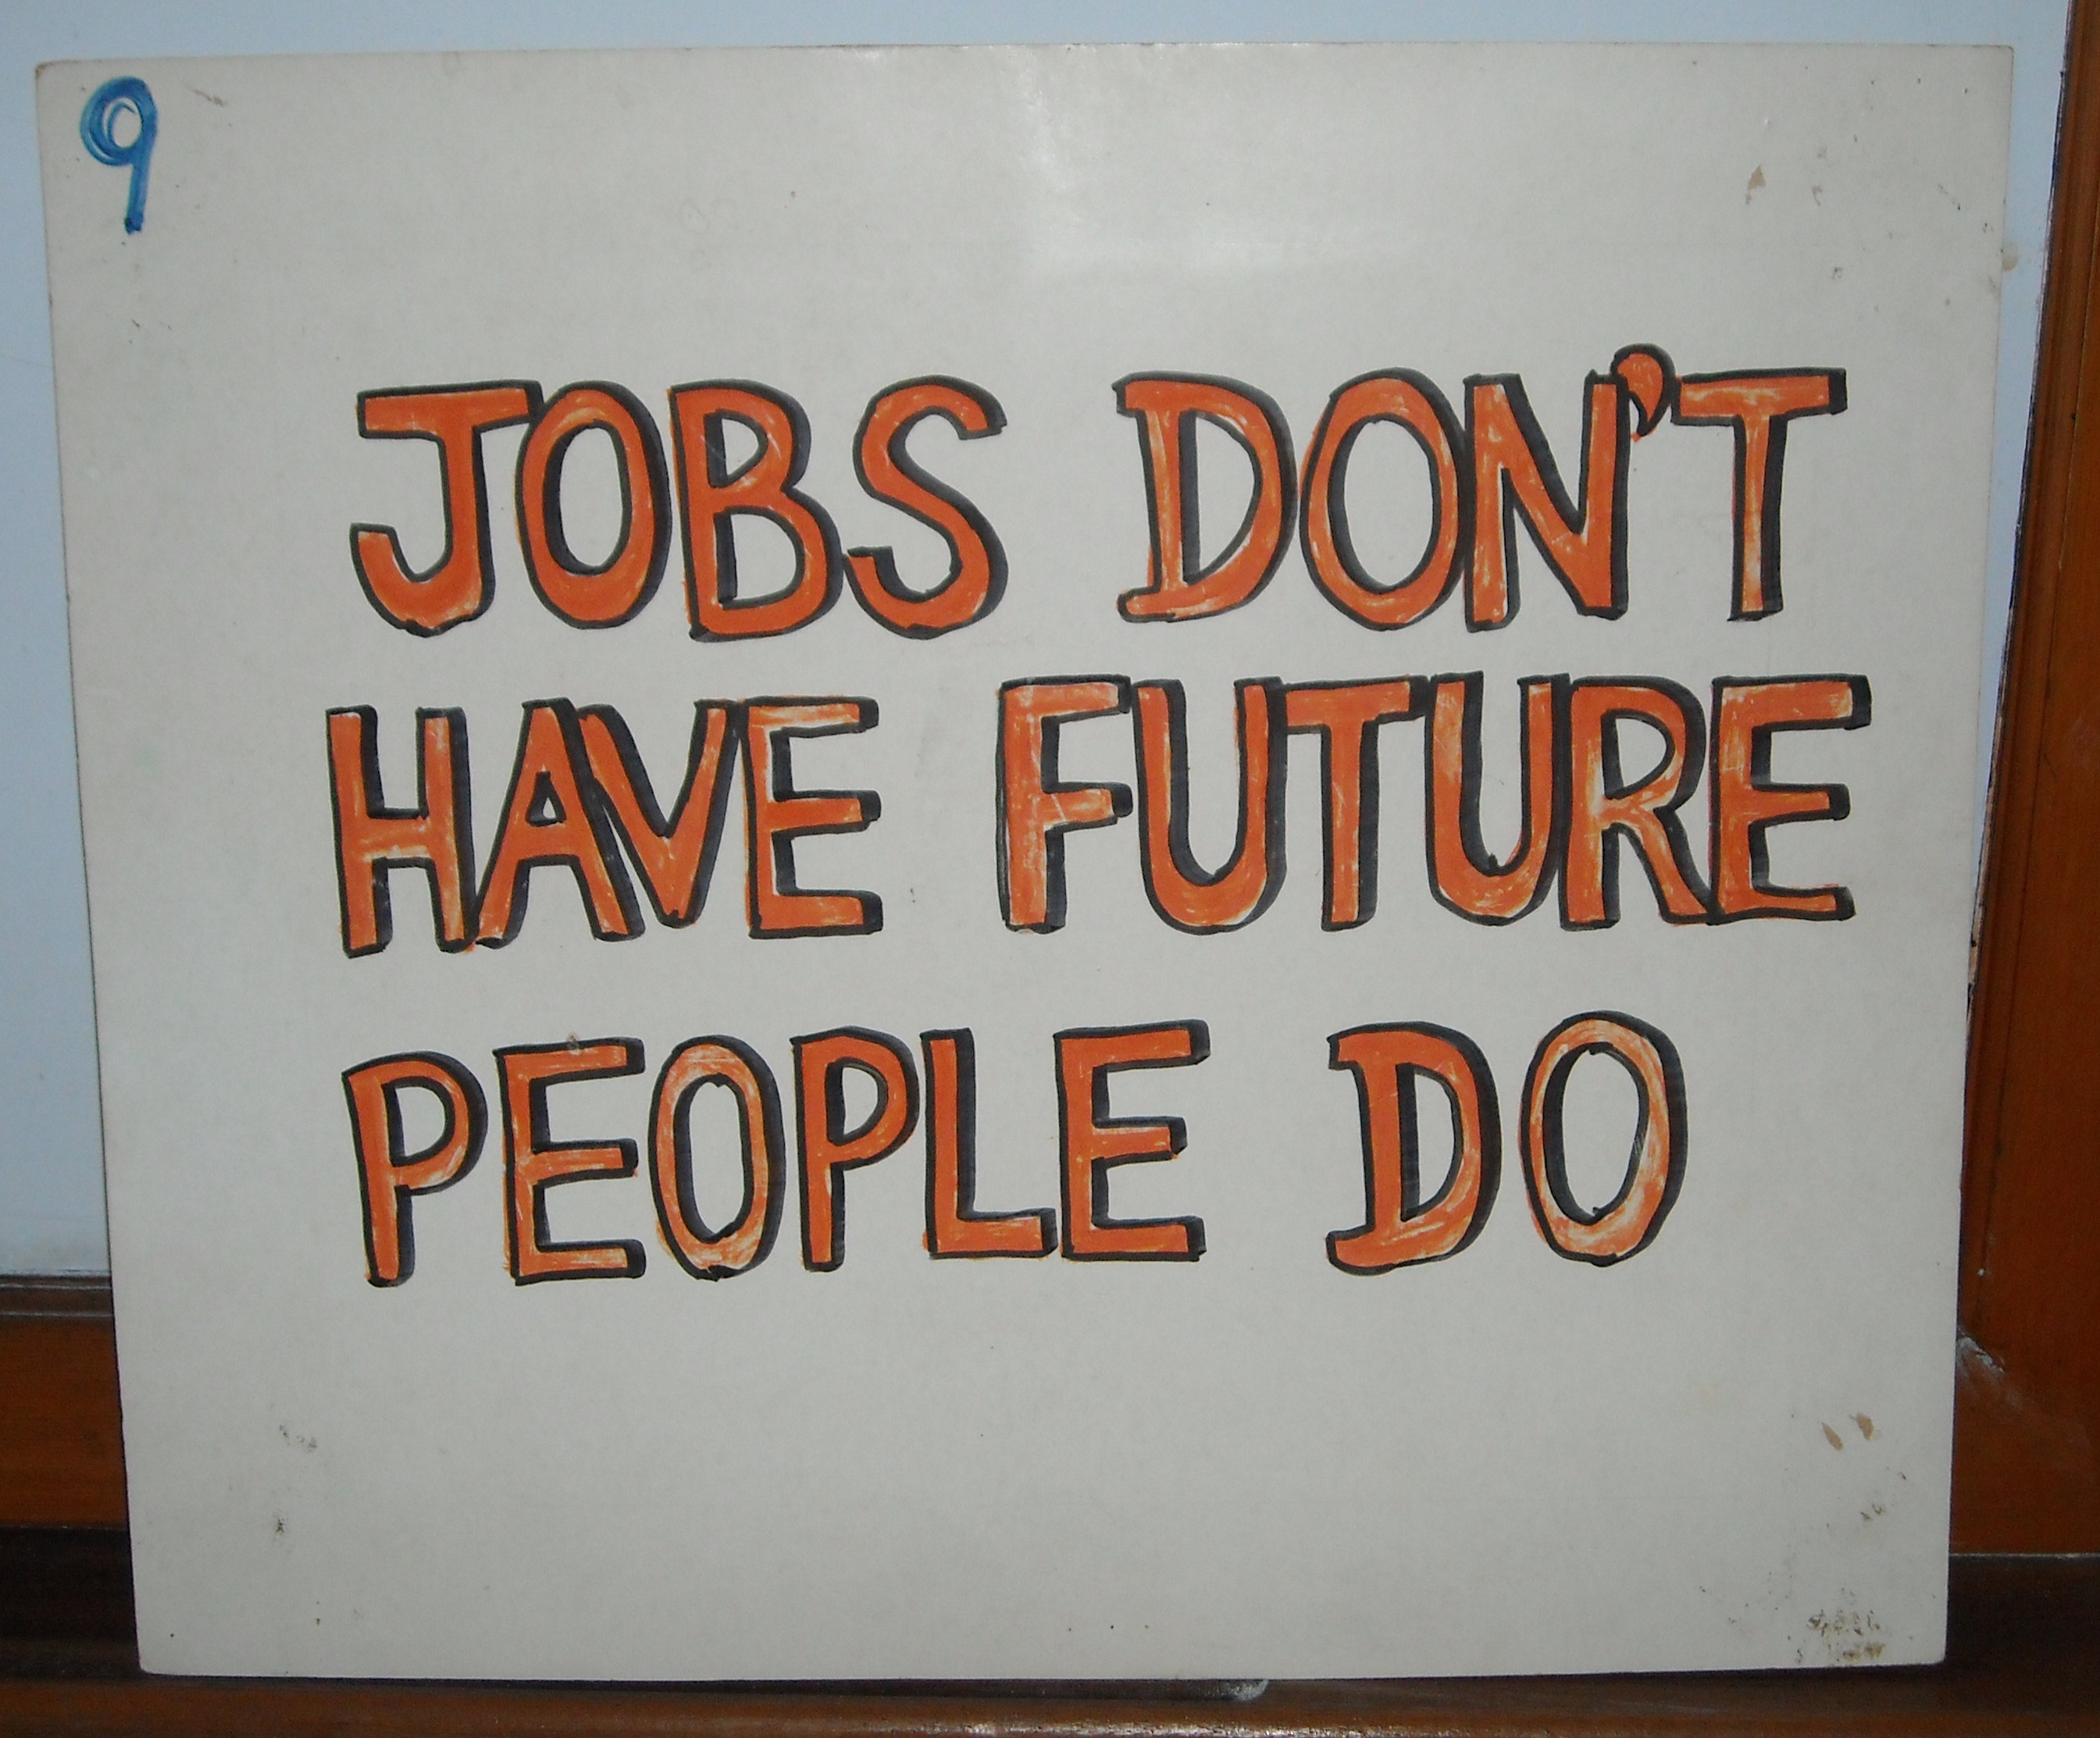 9
JOBS DON'T
HAVE FUTURE
PEOPLE DO